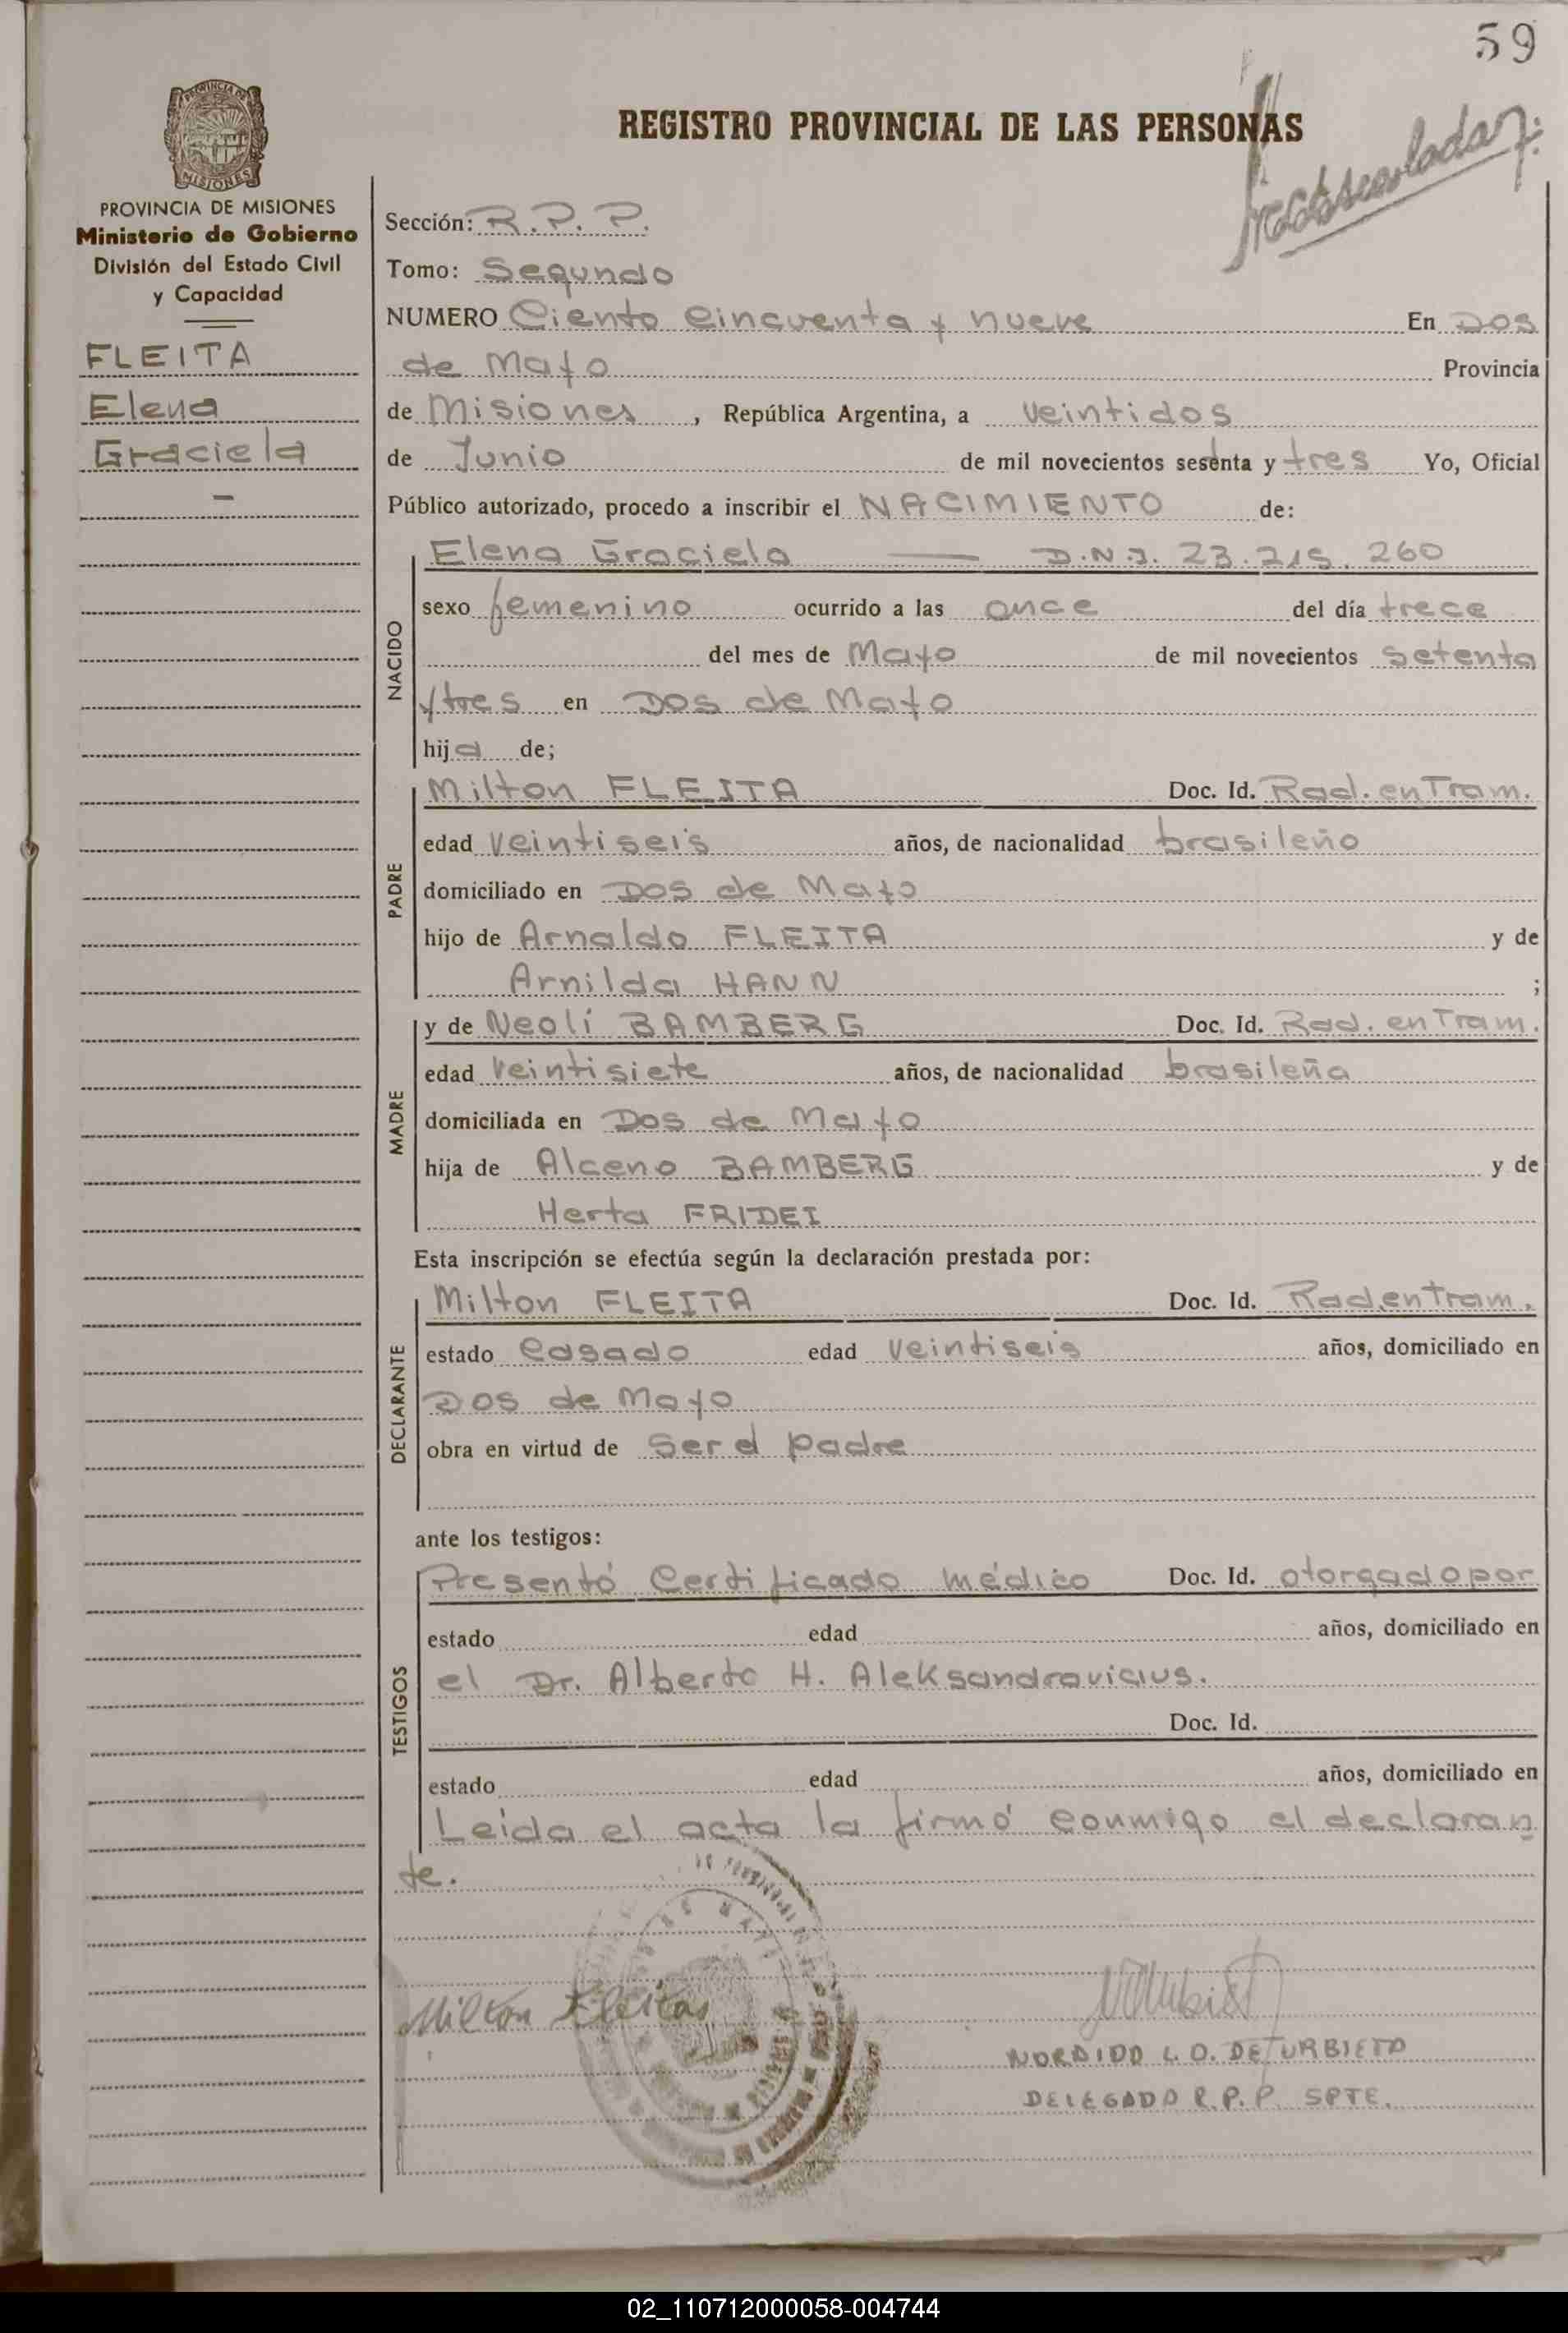 59
REGISTRO PROVINCIAL DE LAS PERSONAS
PROVINCIA DE MISIONES
Ministerio de Gobierno
División del Estado Civil
y Capacidad
FLEITA
Elena
Graciela
Sección: R.P.P.
Tomo: Segundo
NUMERO Ciento Cincuenta y nueve En Dos
de Mayo Provincia
de Misiones, República Argentina, a veintidos
de Junio de mil novecientos sesenta y tres Yo, Oficial
Público autorizado, procedo a inscribir el NACIMIENTO de:
NACIDO
Elena Graciela — D.N.I. 23.215.260
sexo femenino ocurrido a las once del día trece
del mes de Mayo de mil novecientos setenta
y tres en Dos de Mayo
hija de;
PADRE
Milton FLEITA Doc. Id. Rad. en Tram.
edad veintiseis años, de nacionalidad brasileño
domiciliado en Dos de Mayo
hijo de Arnaldo FLEITA y de
Arnilda HANN ;
MADRE
y de Neolí BAMBERG Doc. Id. Rad. en Tram.
edad veintisiete años, de nacionalidad brasileña
domiciliada en Dos de Mayo
hija de Alceno BAMBERG y de
Herta FRIDEI
Esta inscripción se efectúa según la declaración prestada por:
DECLARANTE
Milton FLEITA Doc. Id. Rad. en Tram.
estado Casado edad veintiseis años, domiciliado en
Dos de Mayo
obra en virtud de Ser el padre
ante los testigos:
TESTIGOS
Presentó Certificado médico Doc. Id. otorgado por
estado edad años, domiciliado en
el Dr. Alberto H. Aleksandravicius.
Doc. Id.
estado edad años, domiciliado en
Leída el acta la firmó conmigo el declaran
te.
Milton Fleitas
NORDIDO L. O. DE URBIETA
DELEGADO R.P.P. SPTE.
02_110712000058-004744